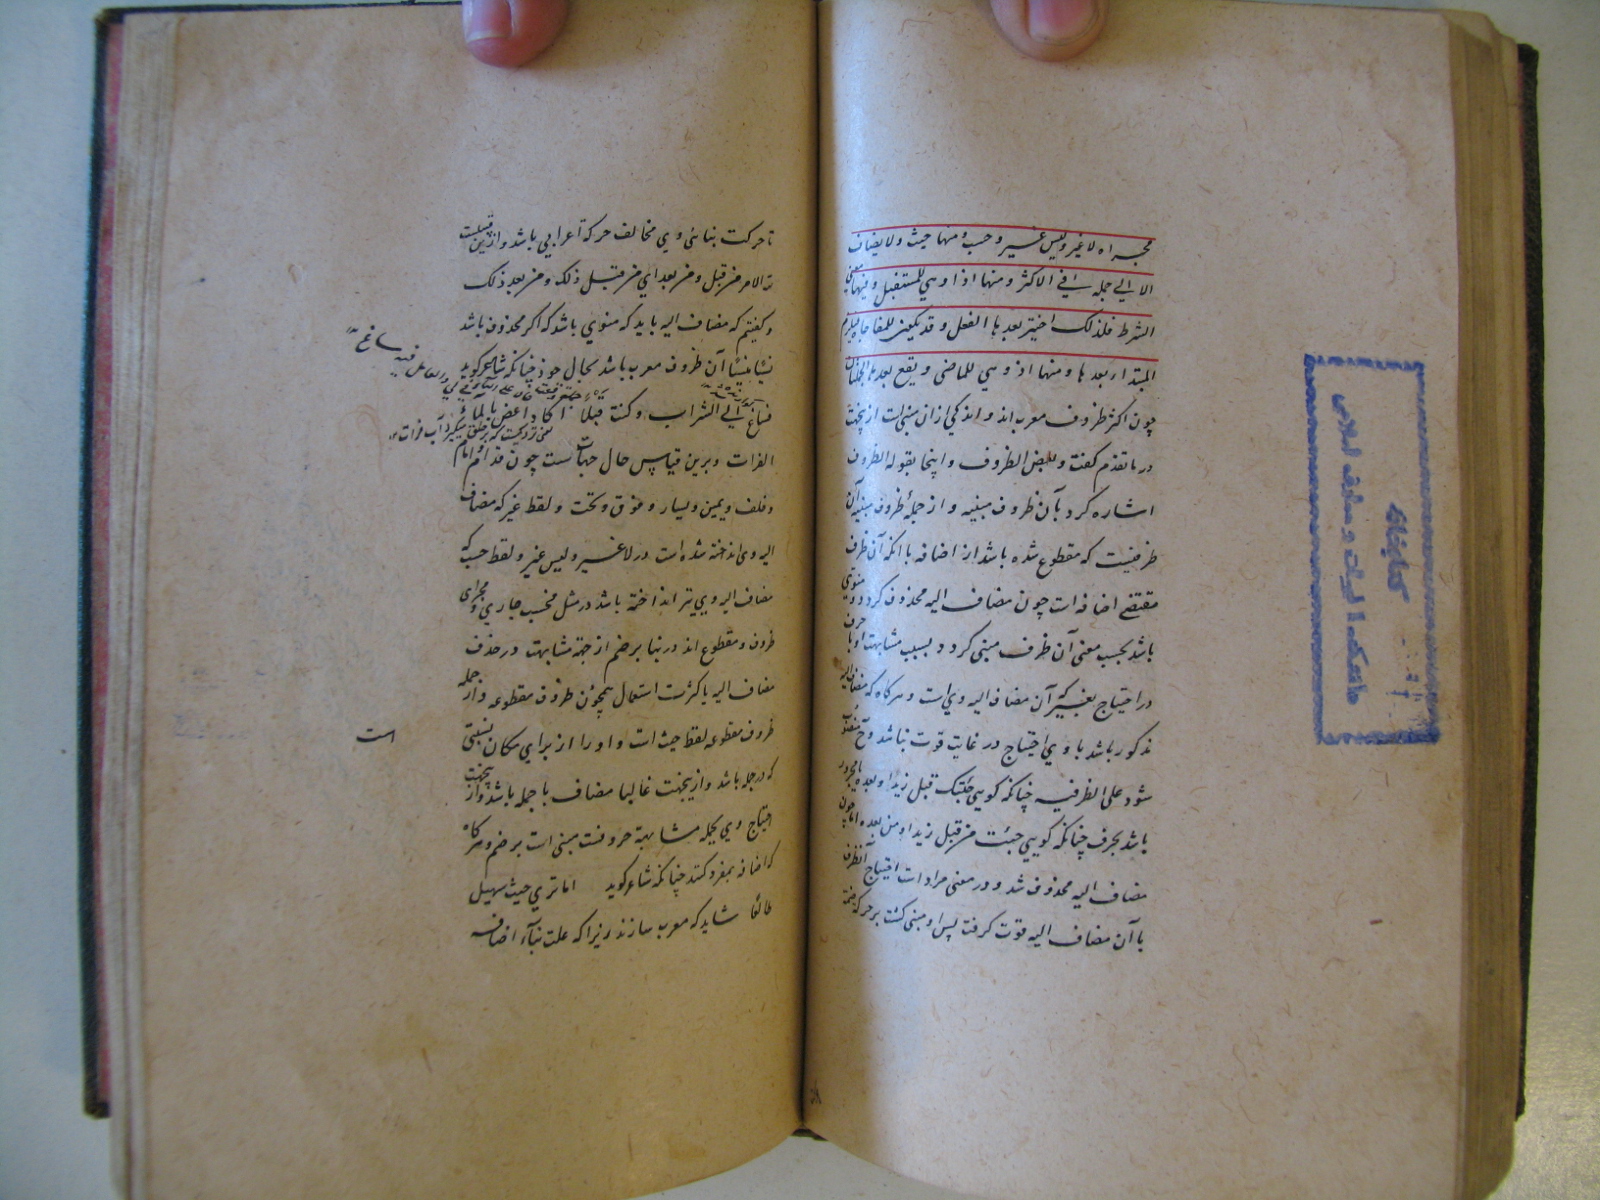 مجراه لا غیر و لیس غیر و حسب و منها حیث و لا یضاف
الا الی جمله فی الاکثر و منها اذا و هی للمستقبل و فیها معنی
الشرط فلذلک اختیر بعدها الفعل و قد یکون للمفاجاه فیلزم
المبتداء بعدها و منها اذ و هی للماضی و یقع بعدها الجملتان
چون اکثر ظروف معرب اند و اندکی ازان مبنی است ازینجهت
در ما تقدم گفت و بعض الظروف و اینجا بقوله الظروف
اشاره کرد بآن ظروف مبنیه و از جمله ظروف مبنیه آن
ظرفیست که مقطوع شده باشد از اضافه با آنکه آن ظرف
مقتضی اضافه است چون مضاف الیه محذوف کرد و منوی
باشد بحسب معنی آن ظرف مبنی کردد بسبب مشابهت او با حرف
در احتیاج بغیر که آن مضاف الیه وی است و هرکاه که مضاف الیه
مذکور باشد با وی احتیاج در غایت قوت نباشد و ح منصوب
شود علی الظرفیه چنانکه کویی جئتک قبل زید او بعده یا مجرور
باشد بحرف چنانکه کویی جئت من قبل زید او من بعده اما چون
مضاف الیه محذوف شد و در معنی مراد است احتیاج آنظرف
با آن مضاف الیه قوت کرفت پس او مبنی کشت بر حرکه ضمه
تا حرکت بنائی وی مخالف حرکه اعرابی باشد و ازین قبیلست
لله الامر من قبل و من بعد ای من قبل ذلک و من بعد ذلک
و کفتیم که مضاف الیه باید که منوی باشد که اکر محذوف باشد
نسیا منسیا آن ظروف معرب باشد بحال خود چنانکه شاعر کوید
فساغ لی الشراب و کنت قبلا اکاد اغص بالماء
الفرات و برین قیاس حال جهات ست چون قدام و امام
و خلف و یمین و یسار و فوق و تحت و لفظ غیر که مضاف
الیه وی انداخته شده است در لا غیر و لیس غیر و لفظ حسب که
مضاف الیه وی نیز انداخته باشد در مثل فحسب جاری مجرای
ظروف مقطوع اند در بنا بر ضم از جهة مشابهت در حذف
مضاف الیه یا کثرت استعمال همچون ظروف مقطوعه و از جمله
ظروف مقطوعه لفظ حیث است و او را از برای مکان نسبتی
که در جمله باشد و ازینجهت غالبا مضاف با جمله باشد و از جهت
احتیاج وی بجمله مشابهة حرفست مبنی است بر ضم و هرکاه
که اضافه بمفرد کنند چنانکه شاعر کوید اما تری حیث سهیل
طالعا شاید که معرب سازند زیرا که علت بناء اضافه
است
کتابخانه
دانشکده الهیات و معارف اسلامی